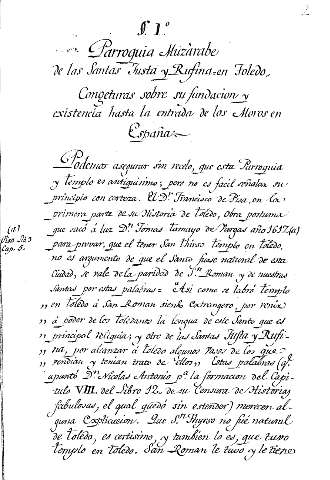 §. 1.º
Parroquia Muzárabe
de las Santas Justa y Rufina en Toledo.
Congeturas sobre su fundacion y
existencia hasta la entrada de los Moros en
España
Podemos asegurar sin recelo, que esta Parroquia
y templo es antiquisimo; pero no es facil señalar su
principio con certeza. El D.r Francisco de Pisa, en la
primera parte de su Historia de Toledo, obra postuma
que sacó á luz D.n Tomas Tamayo de Vargas año 1617 (a)
(a)
Pisa lib. 3
Cap. 5.
para provar, que el tener San Thirso templo en Toledo,
no es argumento de que el Santo fuese natural de esta
Ciudad, se vale de la paridad de S.n Roman y de nuestras
Santas por estas palabras = Asi como se labró templo
„ en Toledo á San Roman siendo extrangero, por venir
„ á poder de los toledanos la lengua de este Santo que es
„ principal reliquia; y otro de las Santas Justa y Rufi-
„ na, por alcanzar á Toledo algunos Vasos de los que
„ vendian y tenian trato de ellos = Estas palabras (q.e
apuntó D.n Nicolas Antonio p.a la formacion del Capi-
tulo VIII. del Libro 12. de su Censura de Historias
fabulosas, el qual quedó sin estender) merecen al-
guna Explicacion. Que S.n Thyrso no fue natural
de Toledo, es certisimo, y tambien lo es, que tuvo
templo en Toledo. San Roman le tuvo y le tiene